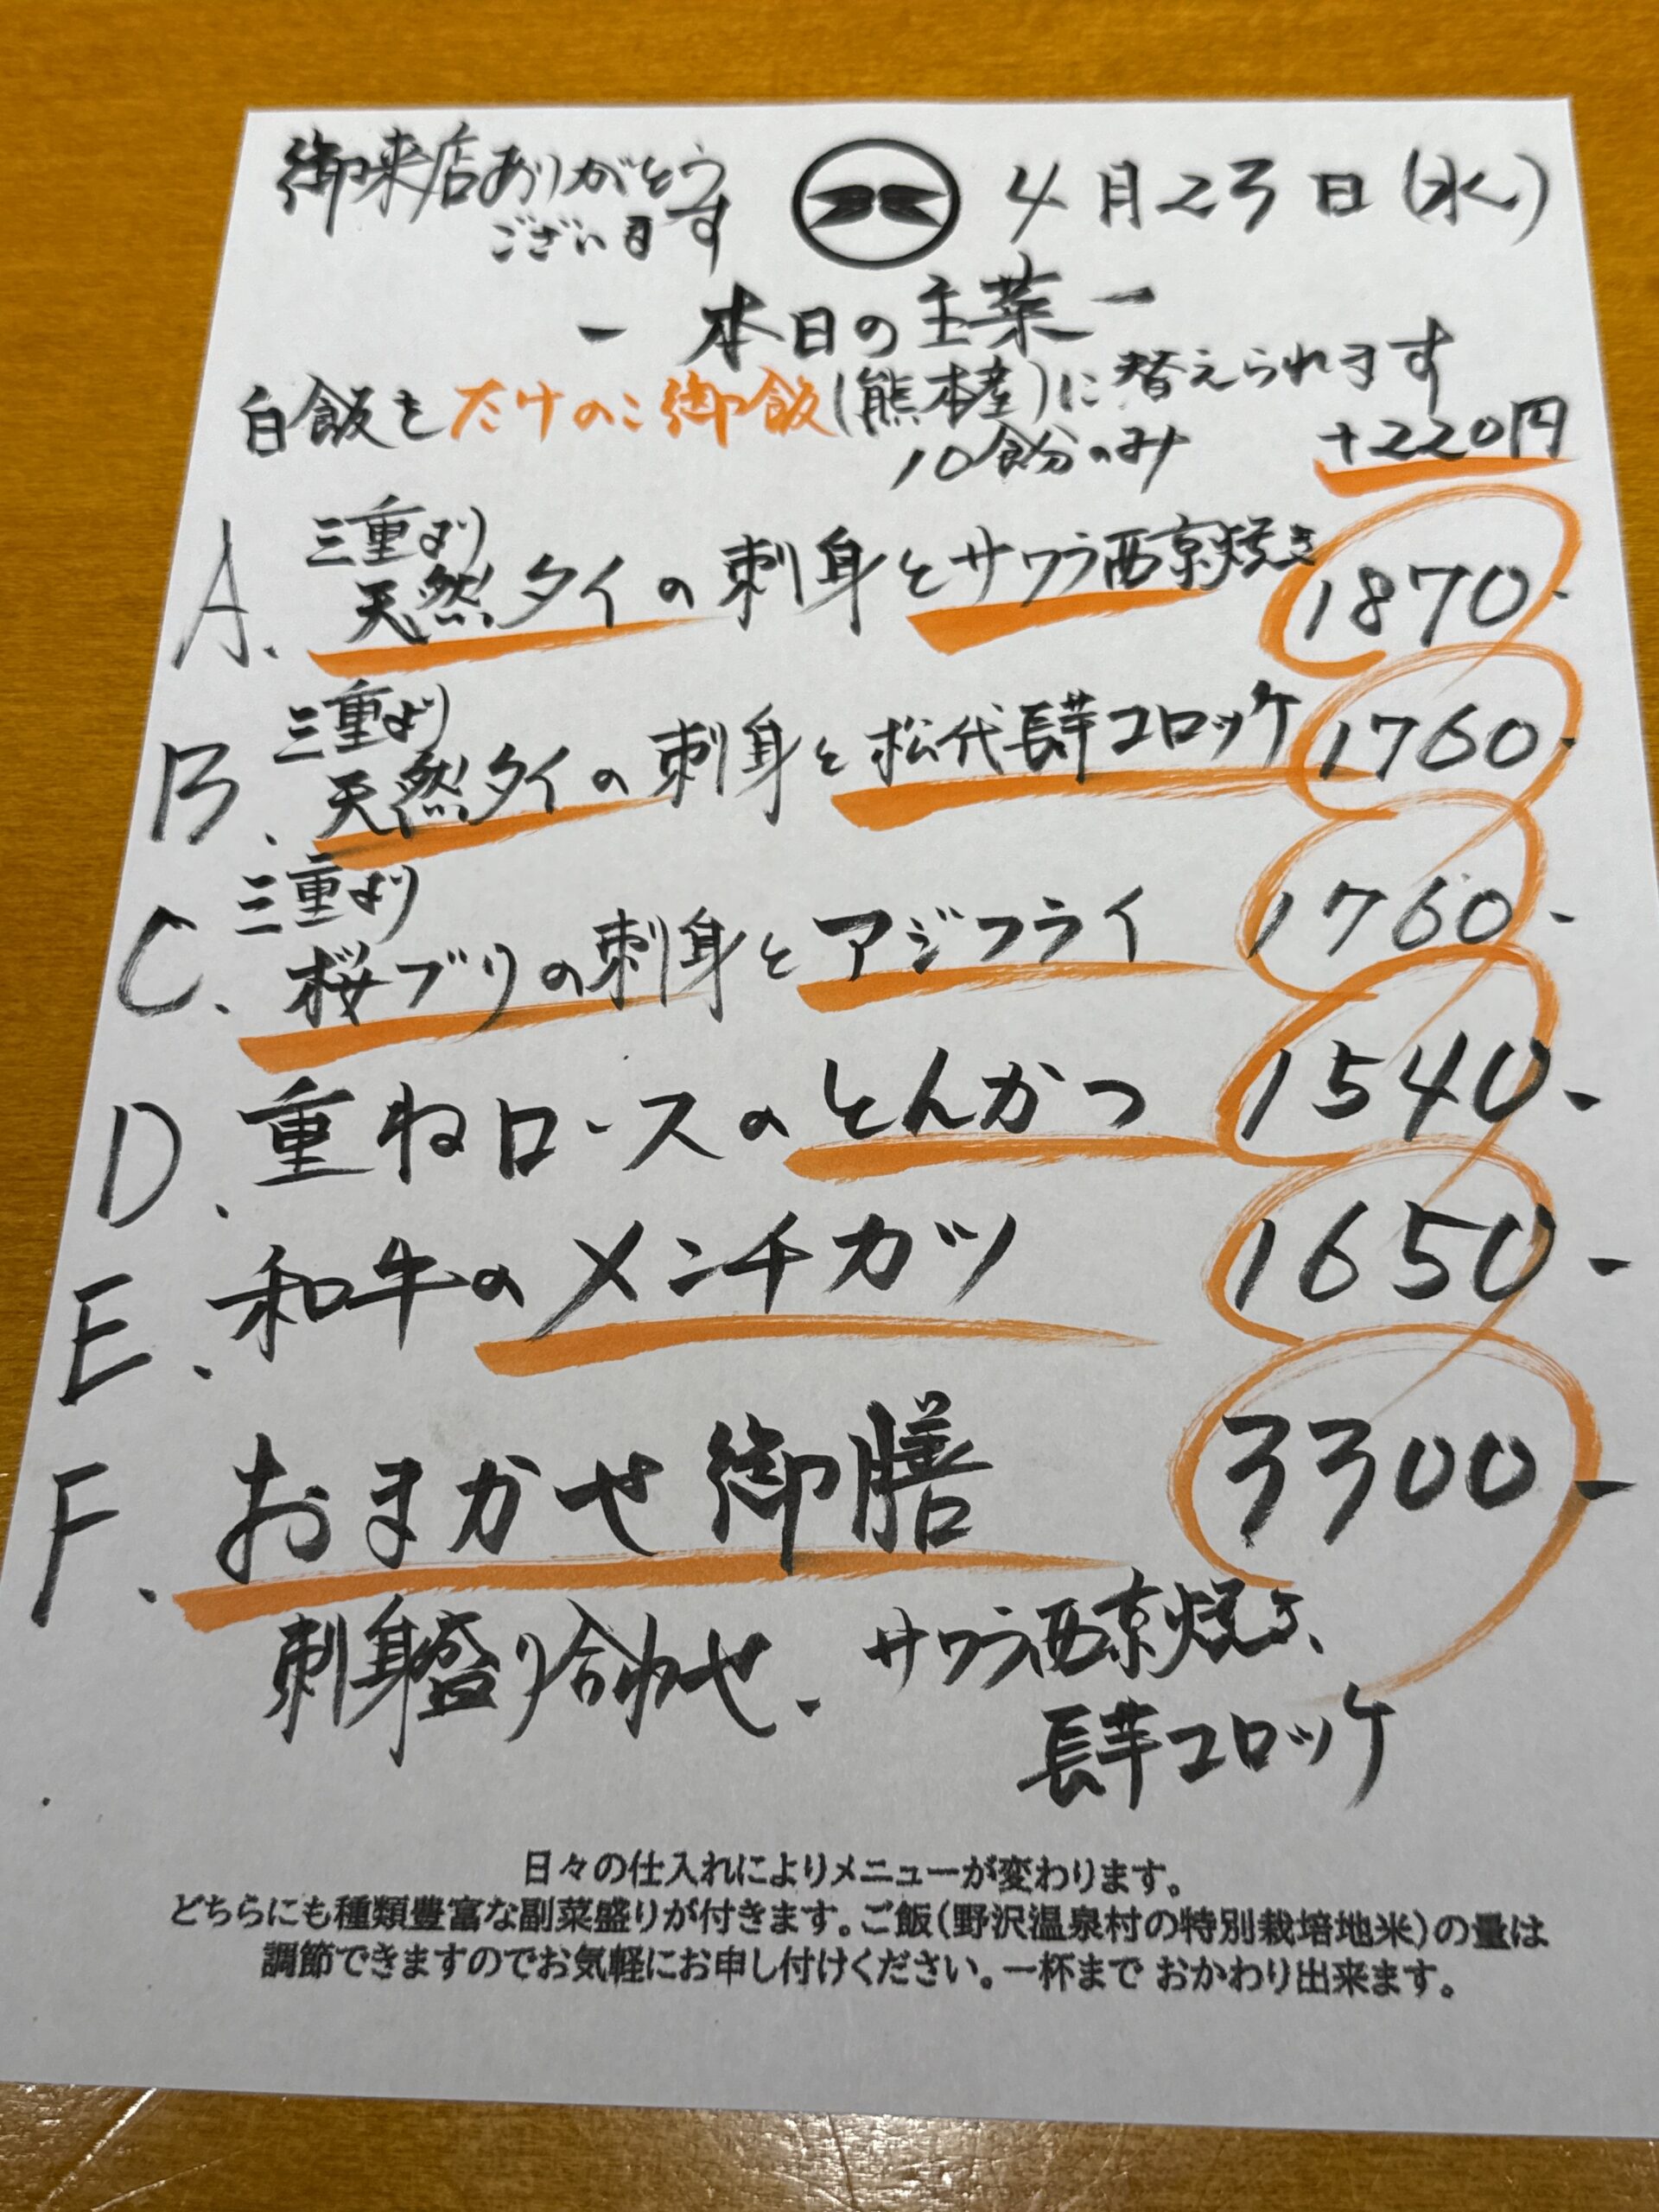 御来店ありがとう
ございます
4月23日(水)
- 本日の主菜 -
白飯をたけのこ御飯(熊本産)に替えられます
10食分のみ +220円
三重より
A. 天然タイの刺身とサワラ西京焼き 1870-
三重より
B. 天然タイの刺身と松代長芋コロッケ 1760-
三重より
C. 桜ブリの刺身とアジフライ 1760-
D. 重ねロースのとんかつ 1540-
E. 和牛のメンチカツ 1650-
F. おまかせ御膳 3300-
刺身盛り合わせ、サワラ西京焼き、
長芋コロッケ
日々の仕入れによりメニューが変わります。
どちらにも種類豊富な副菜盛りが付きます。ご飯(野沢温泉村の特別栽培地米)の量は
調節できますのでお気軽にお申し付けください。一杯まで おかわり出来ます。